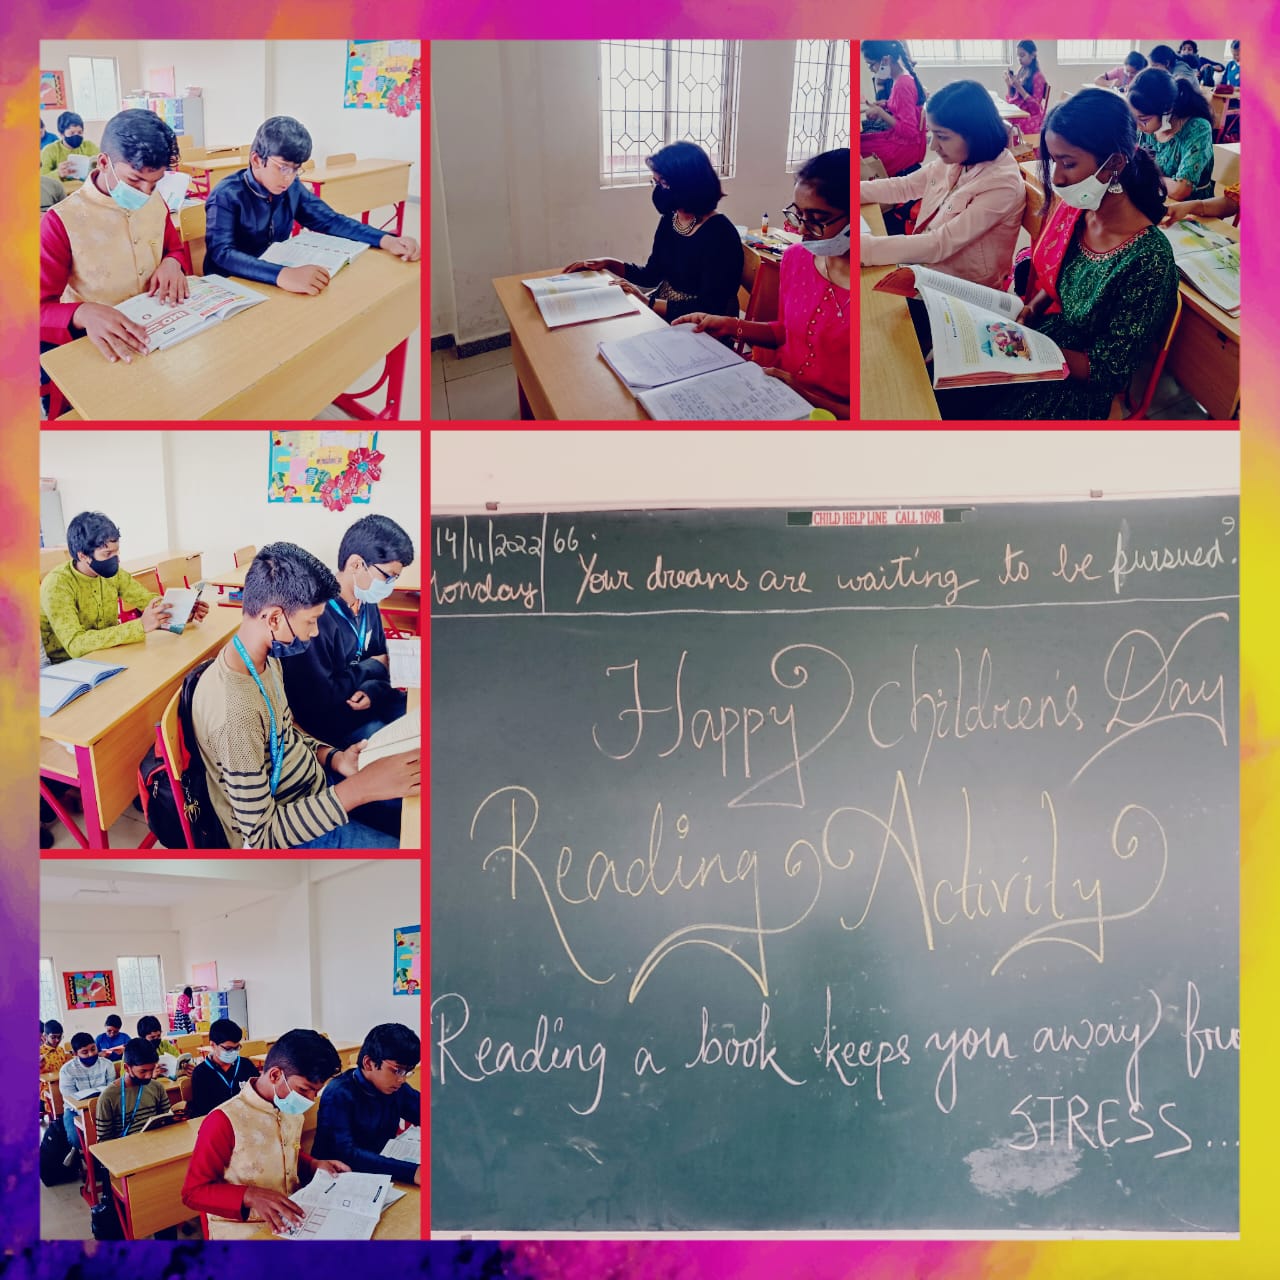 CHILD HELP LINE CALL 1098
14/11/2022 66. Your dreams are waiting to be pursued".
Monday
Happy Children's Day
Reading Activity
Reading a book keeps you away from
STRESS...